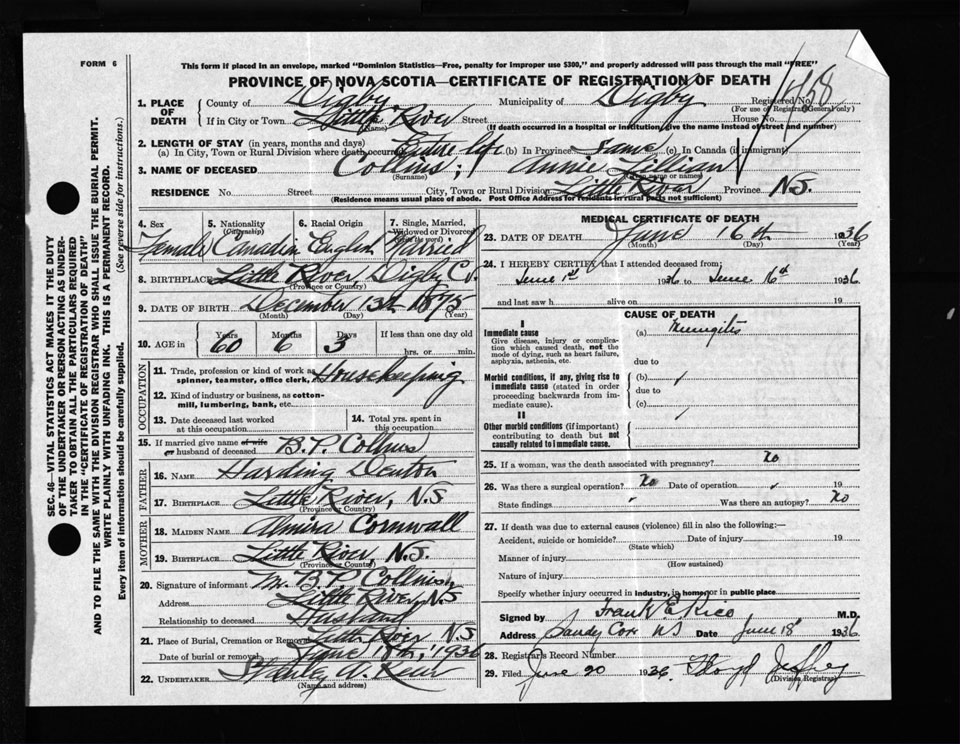 FORM 6
This form if placed in an envelope, marked "Dominion Statistics—Free, penalty for improper use $300," and properly addressed will pass through the mail "FREE"
PROVINCE OF NOVA SCOTIA—CERTIFICATE OF REGISTRATION OF DEATH
1. PLACE OF DEATH County of Digby Municipality of Digby Registered No.
(For use of Registrar General only)
If in City or Town Little River Street House No.
(Name) (If death occurred in a hospital or institution, give the name instead of street and number)
2. LENGTH OF STAY (in years, months and days)
(a) In City, Town or Rural Division where death occurred Entire life (b) In Province Same (c) In Canada (if immigrant)
3. NAME OF DECEASED Collins; Annie Lillian
(Surname) names)
RESIDENCE No. Street City, Town or Rural Division Little River Province N.S.
(Residence means usual place of abode. Post Office Address for residents in rural parts not sufficient)
4. Sex 5. Nationality 6. Racial Origin 7. Single, Married,
(Citizenship) Widowed or Divorced
(Write the word)
Female Canadian English Married
8. BIRTHPLACE Little River, Digby Co
(Province or Country)
9. DATE OF BIRTH December 13th 1875
(Month) (Day) (Year)
10. AGE in Years Months Days If less than one day old
60 6 3 hrs. or min.
OCCUPATION
11. Trade, profession or kind of work as spinner, teamster, office clerk, Housekeeping
12. Kind of industry or business, as cotton-mill, lumbering, bank, etc.
13. Date deceased last worked at this occupation
14. Total yrs. spent in this occupation
15. If married give name of wife or husband of deceased B. P. Collins
FATHER
16. NAME Harding Denton
17. BIRTHPLACE Little River, N.S
(Province or Country)
MOTHER
18. MAIDEN NAME Almira Cornwall
19. BIRTHPLACE Little River N.S.
(Province or Country)
20. Signature of informant B. P. Collins
Address Little River, N.S
Relationship to deceased Husband
21. Place of Burial, Cremation or Removal Little River N.S
Date of burial or removal June 18th, 1936
22. UNDERTAKER
(Name and address)
MEDICAL CERTIFICATE OF DEATH
23. DATE OF DEATH June 16th 1936
(Month) (Day) (Year)
24. I HEREBY CERTIFY that I attended deceased from;
June 1st 1936 to June 16th 1936
and last saw h alive on 19
CAUSE OF DEATH
I
Immediate cause (a) Menengites
Give disease, injury or complication which caused death, not the mode of dying, such as heart failure, asphyxia, asthenia, etc.
due to
Morbid conditions, if any, giving rise to immediate cause (stated in order proceeding backwards from immediate cause).
(b)
due to
(c)
II
Other morbid conditions (if important) contributing to death but not causally related to immediate cause.
25. If a woman, was the death associated with pregnancy? No
26. Was there a surgical operation? No Date of operation 19
State findings Was there an autopsy? No
27. If death was due to external causes (violence) fill in also the following:—
Accident, suicide or homicide? Date of injury 19
(State which)
Manner of injury
(How sustained)
Nature of injury
Specify whether injury occurred in industry, in home, or in public place
Signed by Frank E Rice M.D.
Address Sandy Cove NS Date June 18 1936
28. Registrar's Record Number
29. Filed June 20 1936 Floyd Jeffrey
(Division Registrar)
SEC. 46—VITAL STATISTICS ACT MAKES IT THE DUTY
OF THE UNDERTAKER OR PERSON ACTING AS UNDER-
TAKER TO OBTAIN ALL THE PARTICULARS REQUIRED
IN THE "CERTIFICATE OF REGISTRATION OF DEATH"
AND TO FILE THE SAME WITH THE DIVISION REGISTRAR WHO SHALL ISSUE THE BURIAL PERMIT.
WRITE PLAINLY WITH UNFADING INK. THIS IS A PERMANENT RECORD.
Every item of information should be carefully supplied. (See reverse side for instructions.)